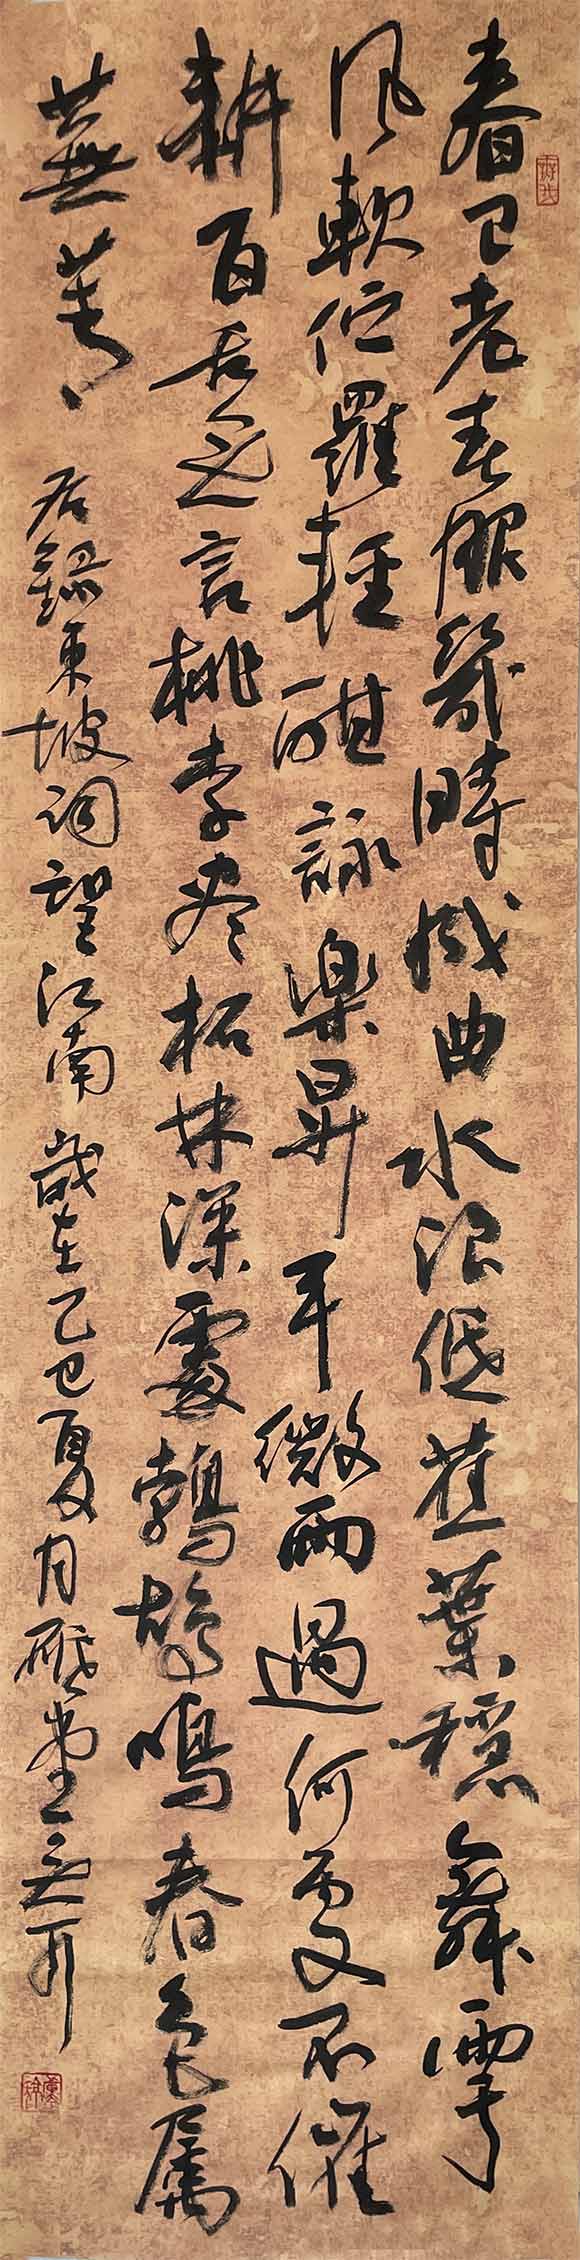 春已老春服幾時成曲水浪低蕉葉穩舞雩
風軟伫羅輕酣詠楽昇平微雨過何處不催
耕百舌无言桃李尽柘林深處鵓鴣鳴春色属
蕪菁 右録東坡词望江南 歲在乙巳夏月